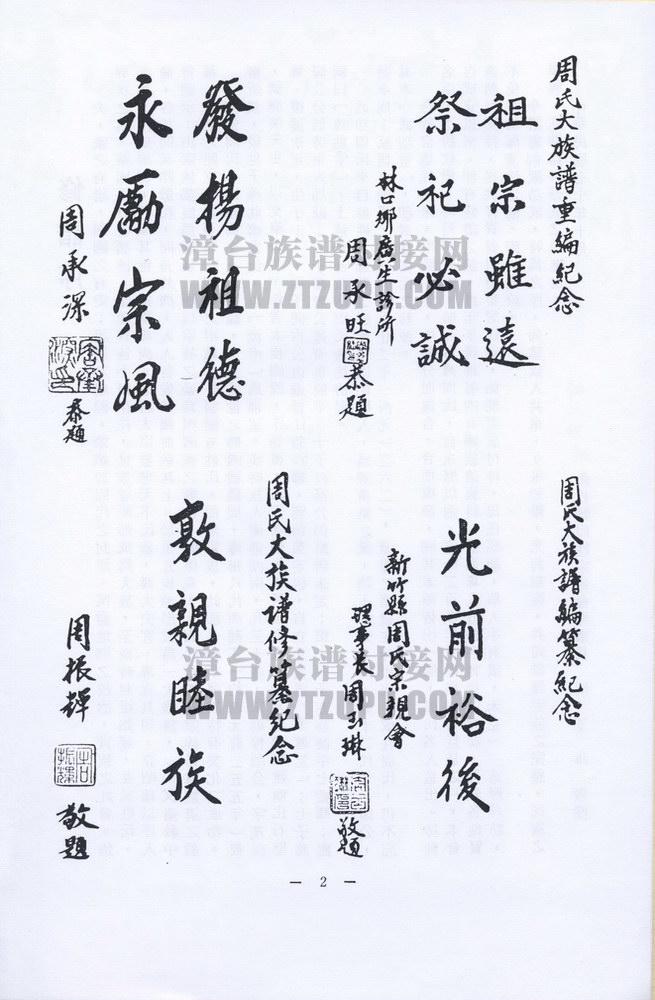 周氏大族譜重編紀念
祖宗雖遠
祭祀必誠
林口鄉廣生診所
周永旺
恭題
發揚祖德
永勵宗風
周承深
恭題
周氏大族譜編纂紀念
光前裕後
新竹縣周氏宗親會
理事長周玉琳
敬題
周氏大族譜修纂紀念
敦親睦族
周振輝
敬題
漳台族谱对接网
WWW.ZTZUPU
漳台族谱对接网
WWW.ZTZUPU
— 2 —